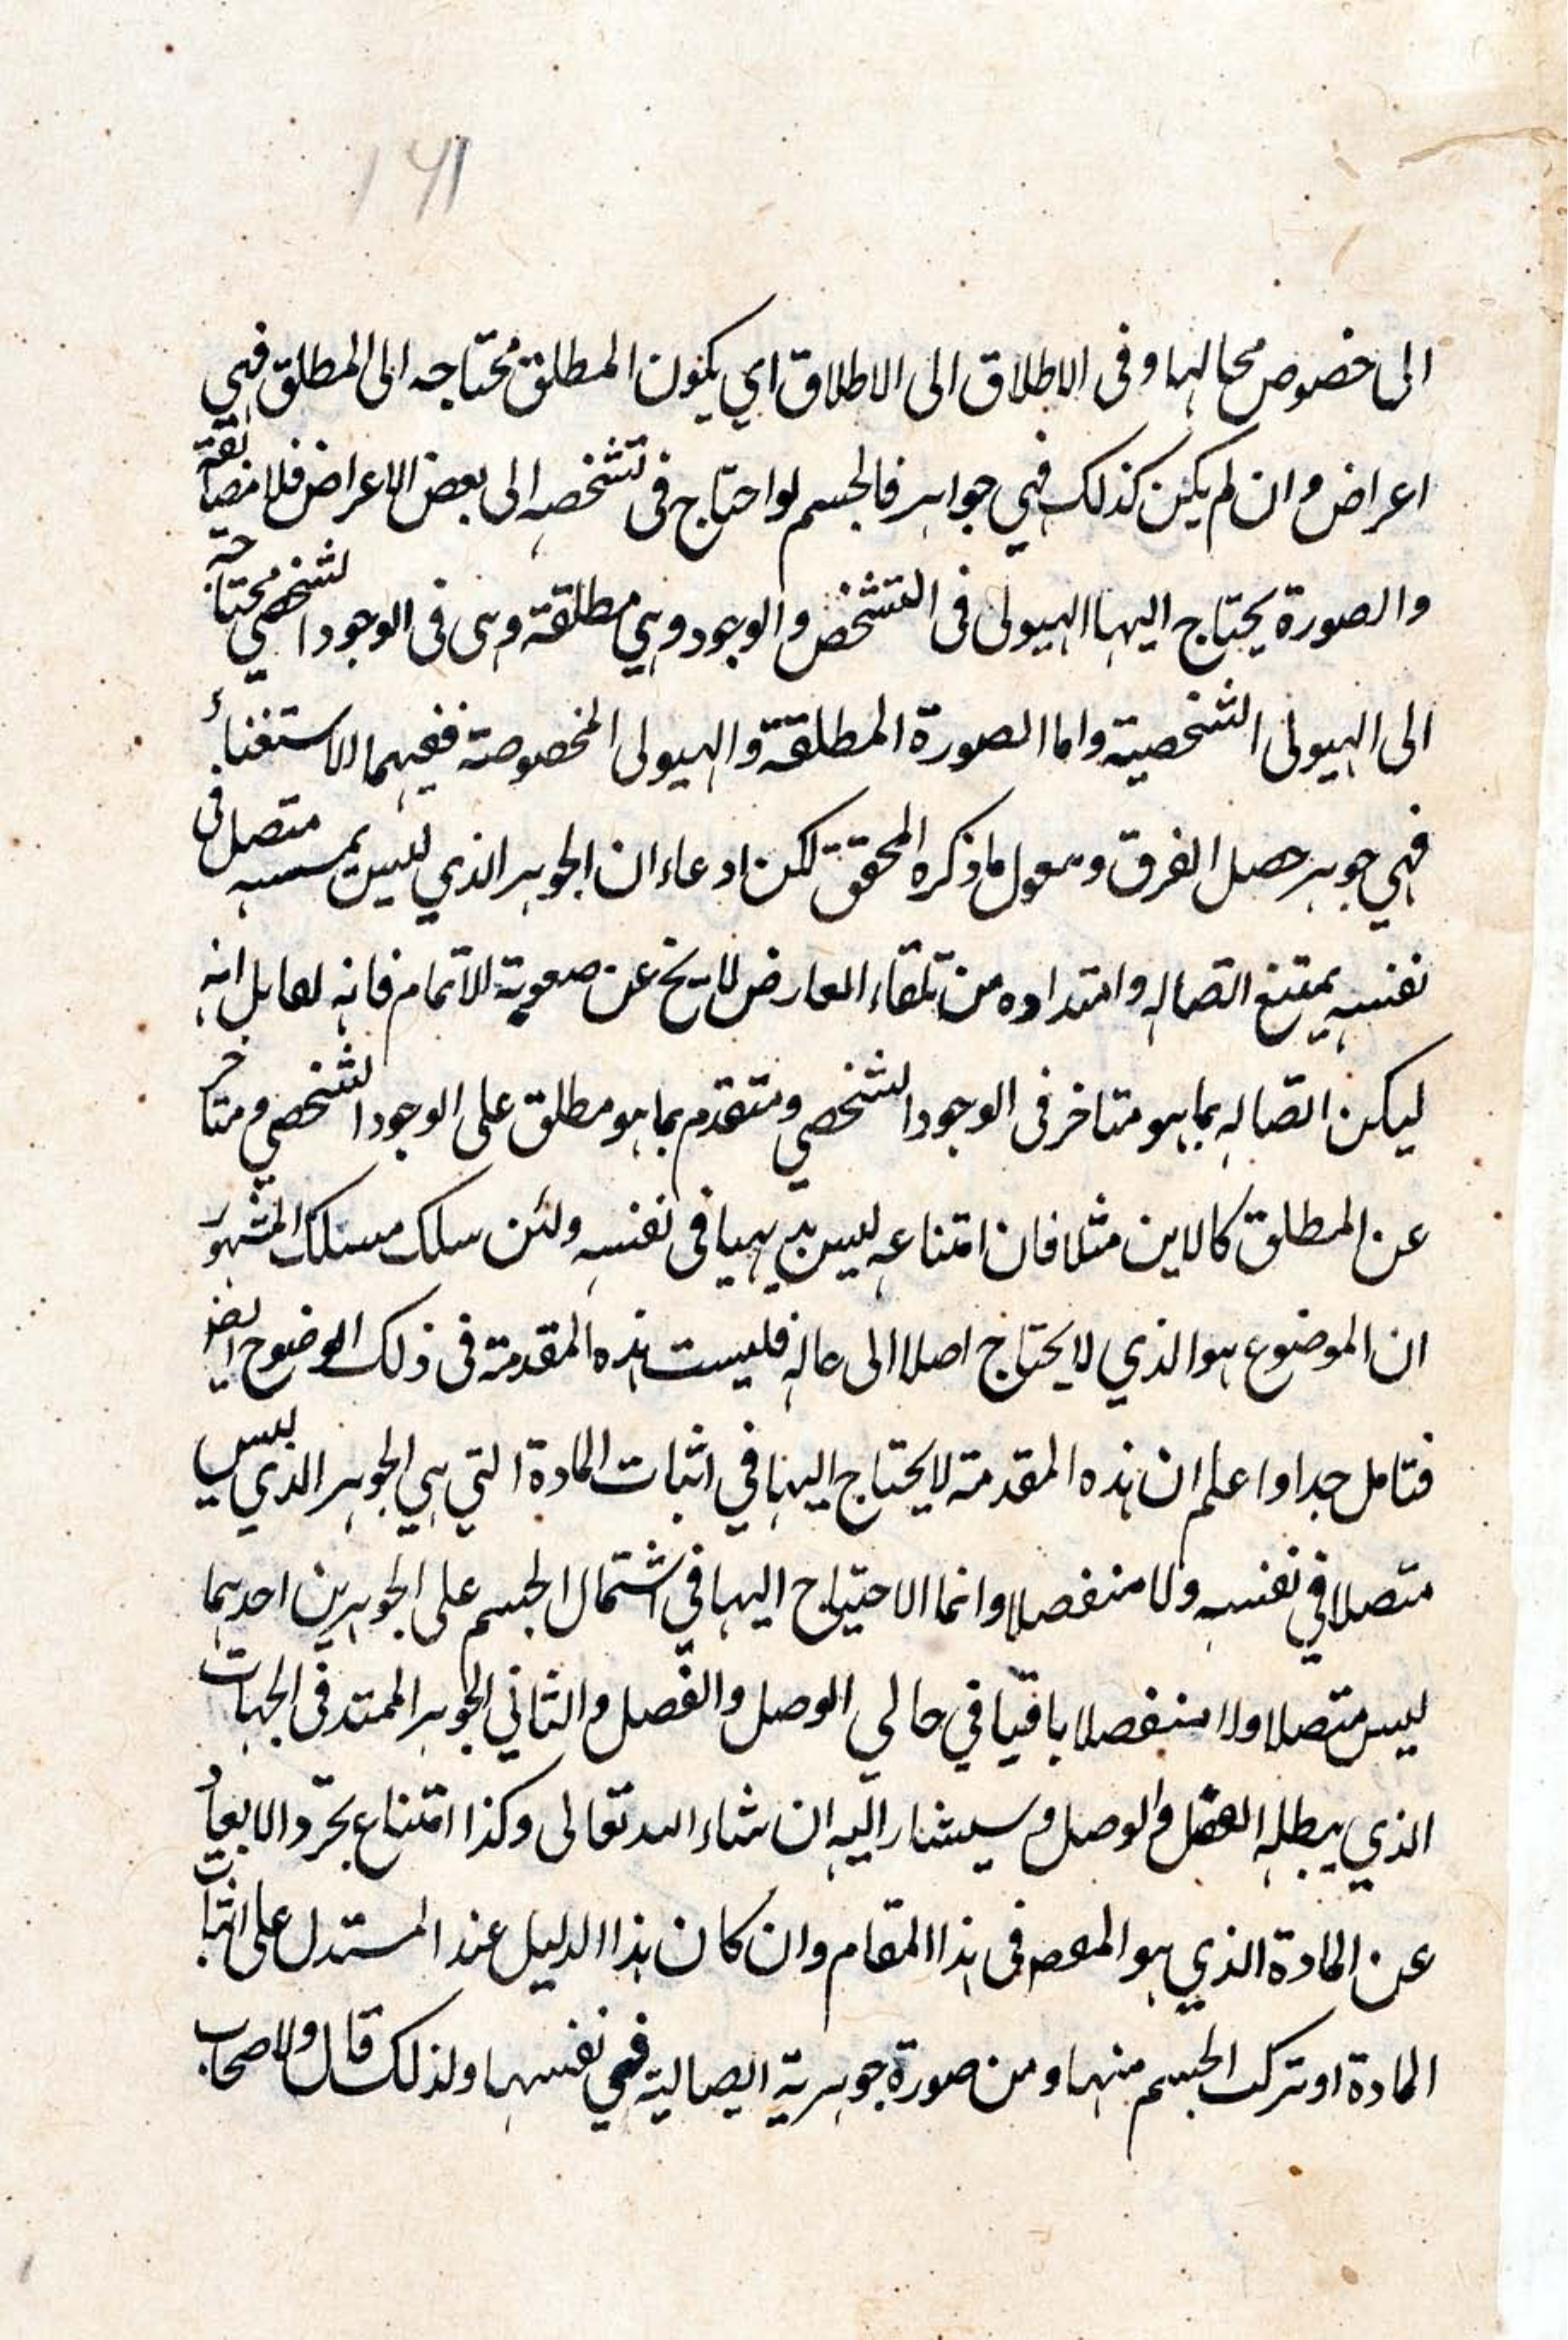 ١٩١
الى خصوص محالها وفى الاطلاق الى الاطلاق اي يكون المطلق محتاجه الى المطلق فهي
اعراض وان لم يكن كذلك فهي جواهر فالجسم لو احتاج فى تشخصه الى بعض الاعراض فلا مضايقة
والصورة يحتاج اليها الهيولى فى التشخص والوجود وهي مطلقة وهى فى الوجود الشخصي محتاجة
الى الهيولى الشخصية واما الصورة المطلقة والهيولى المخصوصة ففيهما الاستغناء
فهي جوهر حصل الفرق و ما ذكره المحقق لكن ادعاء ان الجوهر الذي ليس متصل فى
نفسه يمتنع اتصاله وامتداده من تلقاء العارض لا يخ عن صعوبة الاتمام فانه لقايل انه
ليكن اتصاله بما هو متاخر فى الوجود الشخصي ومتقدم بما هو مطلق على الوجود الشخصي ومتاخر
عن المطلق كالاين مثلا فان امتناعه ليس بديهيا فى نفسه ولئن سلك مسلك المشهور
ان الموضوع هو الذي لا يحتاج اصلا الى حاله فليست هذه المقدمة فى ذلك الوضوح ايضا
فتامل جدا واعلم ان هذه المقدمة لا يحتاج اليها في اثبات المادة التي هي الجوهر الذي ليس
متصلا في نفسه ولا منفصلا وانما الاحتياج اليها في اشتمال الجسم على الجوهرين احدهما
ليس متصلا ولا منفصلا باقيا في حالي الوصل والفصل والثاني الجوهر الممتد فى الجهات
الذي يبطله الفصل والوصل وسيشار اليه ان شاء الله تعالى وكذا امتناع تجرّد الابعاد
عن المادة الذي هو المقصم فى هذا المقام وان كان هذا الدليل عند المستدل على اثبات
المادة او تركب الجسم منها ومن صورة جوهرية ايصالية فهي نفسها ولذلك قال ولاصحاب